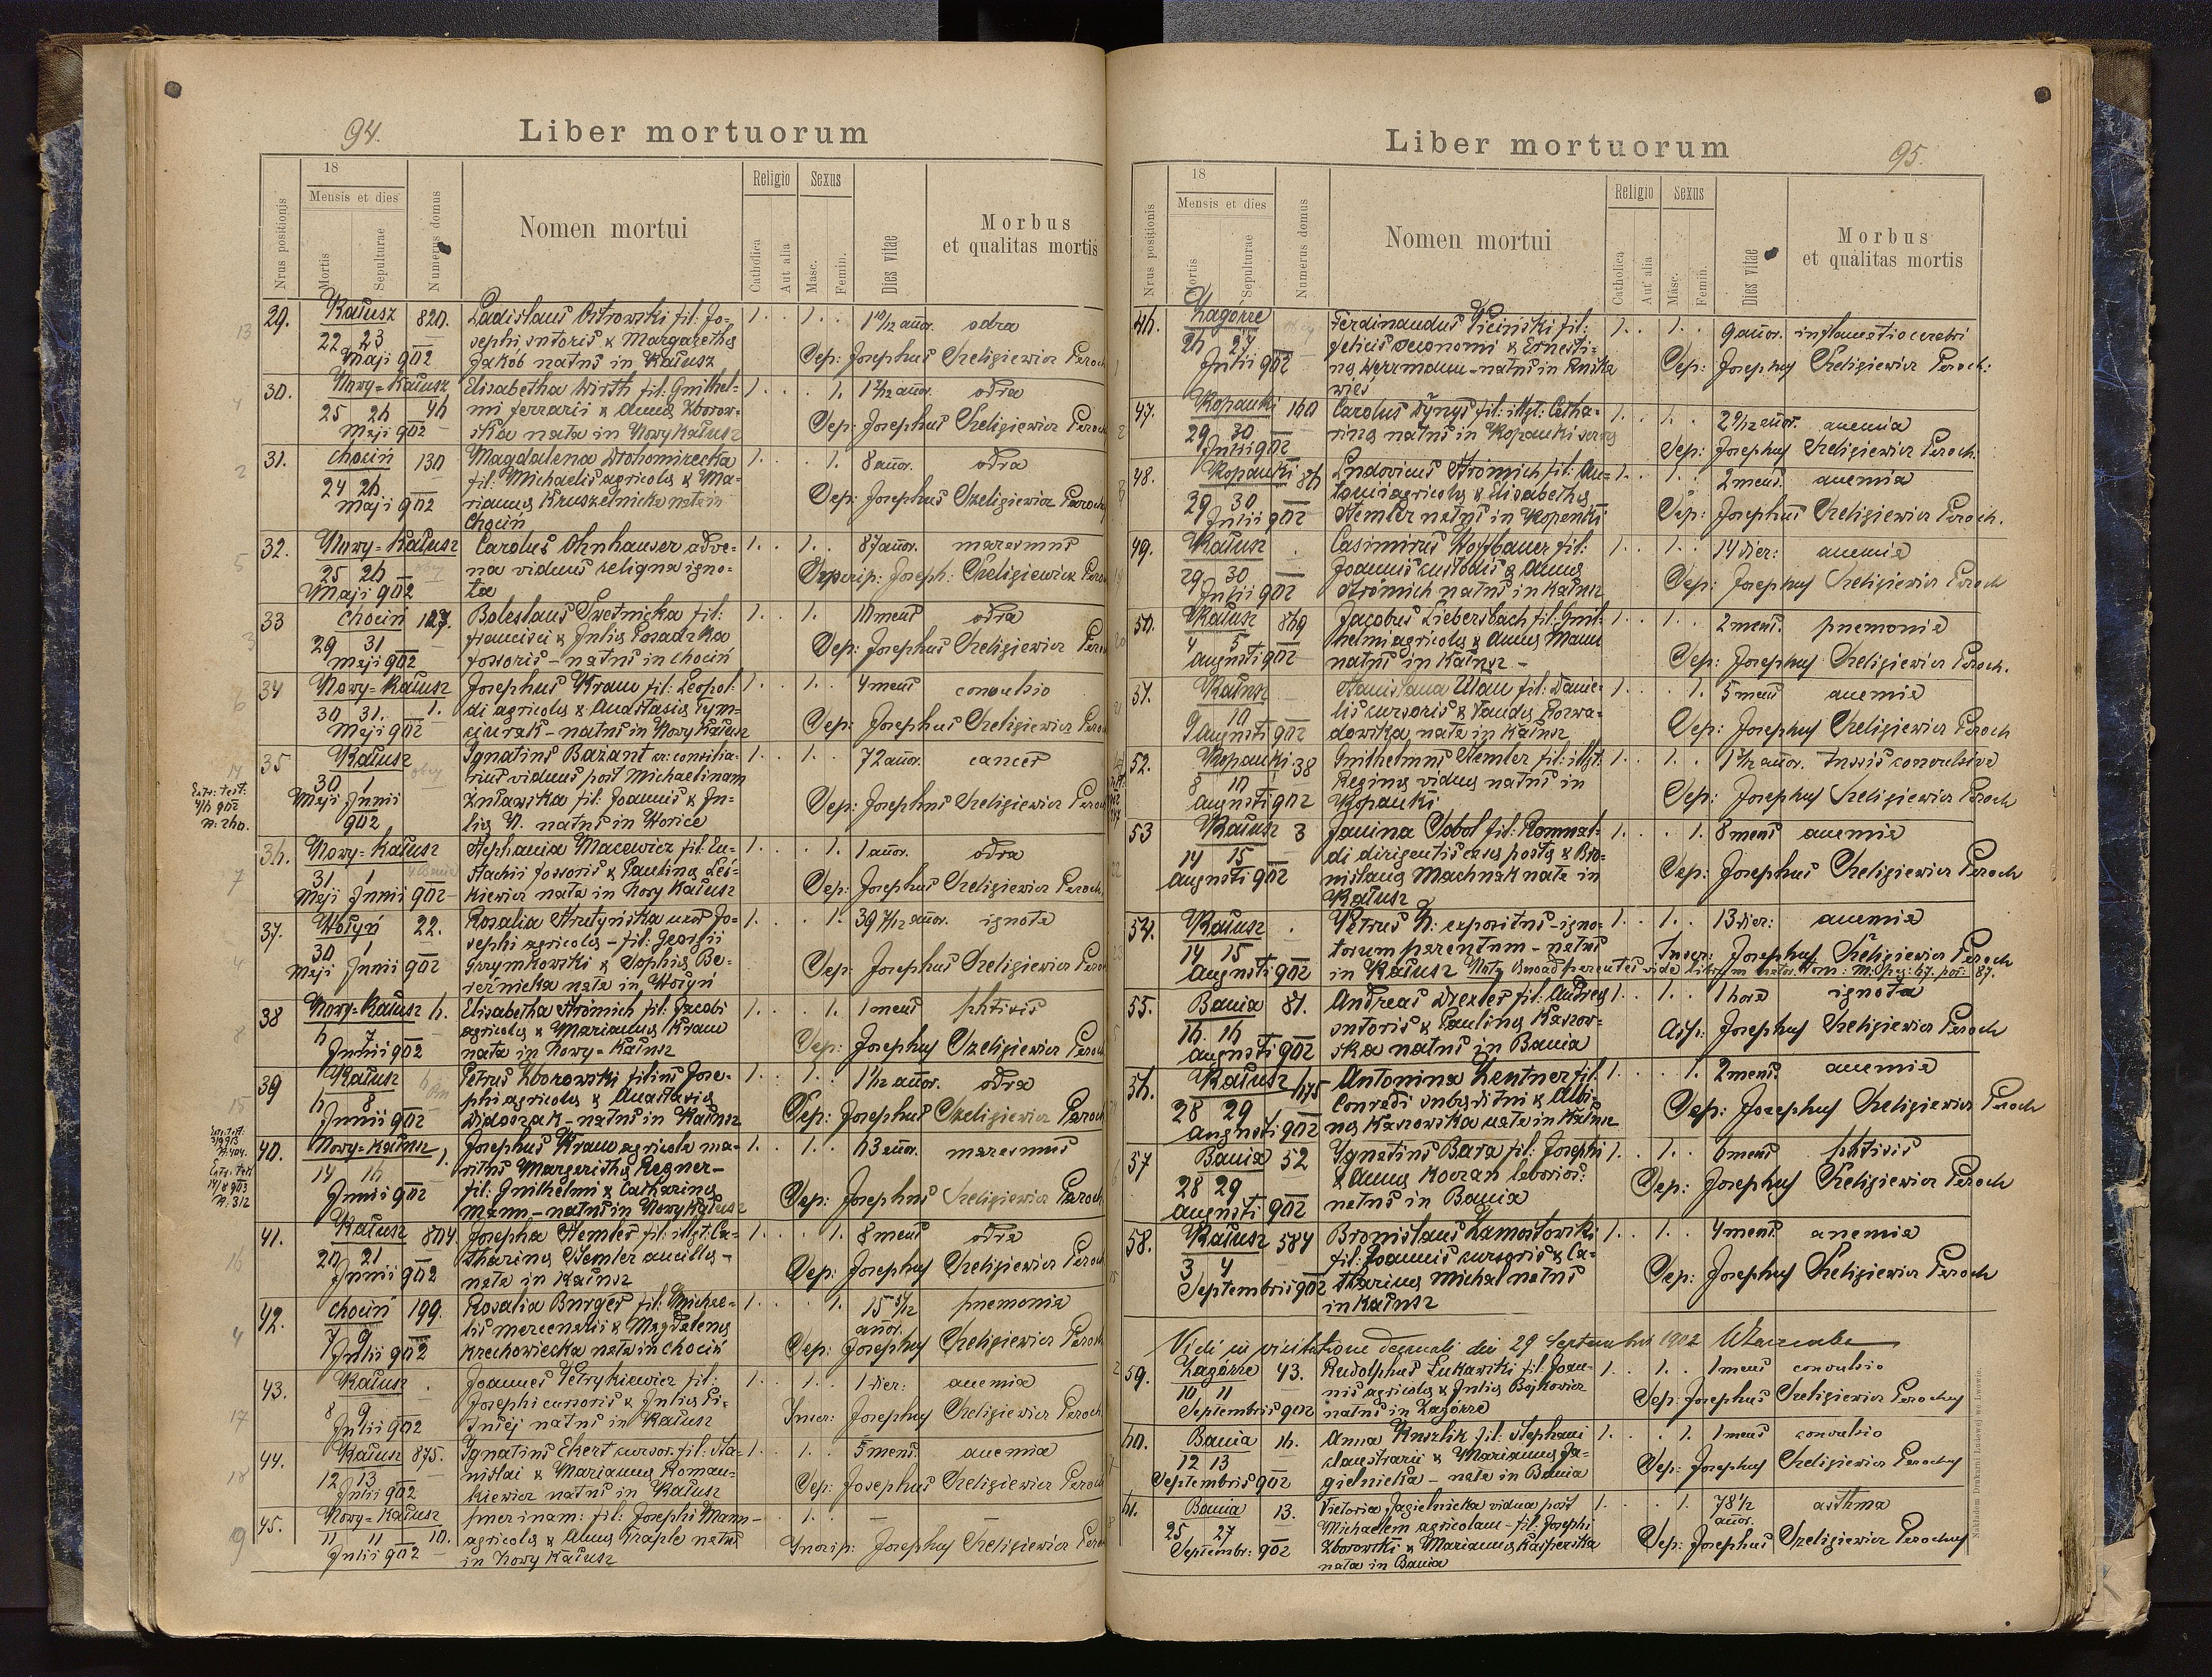 94.
Liber mortuorum
18
Mensis et dies
Religio
Sexus
Nrus positionis
Mortis
Sepulturae
Numerus domus
Nomen mortui
Catholica
Aut alia
Masc.
Femin.
Dies vitae
Morbus
et qualitas mortis
29. Kałusz 820. Ladislaus Ostrowski fil: Jo- 1. 1. 1 10/12 annor. odra
22 23 sephi sutoris & Margarethę
Maji 902 Jakób natus in Kałusz Sep: Josephus Szeligiewicz Paroch
30. Nowy-Kałusz Elisabetha Wirth fil: Guilhel- 1. 1. odra
25 26 46 mi ferrarii & Annę Zborow-
Maji 902 ska nata in Nowy Kałusz Sep: Josephus Szeligiewicz Paroch
31. Chocin 130 Magdalena Drohomirecka 1. 1. 8 annor. odra
24 26 fil: Michaelis agricolę & Ma-
Maji 902 riannę Kruszelnicka nata in Sep: Josephus Szeligiewicz Paroch
Chocin
32. Nowy-Kałusz Carolus Ohnhauser adve- 1. 1. 87 annor. marasmus
25 26 na viduus religna igno-
Maji 902 ta Josephus Szeligiewicz Paroch
33 Chocin 127. Boleslaus Swetnicka fil: 1. 1. 10 mens odra
29 31 Francisci & Julię Posadzka
Maji 902 fossoris - natus in Chocin Sep: Josephus Szeligiewicz Paroch
34 Nowy-Kałusz Josephus Kraus fil: Leopol- 1. 1. 4 mens convulsio
30 31. 1. di agricolę & Anastasię Sym-
Maji 902 natus in Nowy Kałusz Sep: Josephus Szeligiewicz Paroch
35 Kałusz Ignatius Bażant consilia- 1. 1. 72 annor. cancer
30 1 rius viduus post Michaelinam
Maji Junii fil: Joannis & Ju- Sep: Josephus Szeligiewicz Paroch
902 lię N. natus in
36. Nowy-Kałusz Stephania Macewicz fil: Eu- 1. 1. 1 annor. odra
31 1 stachii fossoris & Paulinę Leś-
Maji Junii 902 kiewicz nata in Nowy Kałusz Sep: Josephus Szeligiewicz Paroch
37. Wołyń 22. Rosalia Strutyńska uxor Jo- 1. 1. 39 annor. ignota
30 1 sephi agricolę - fil: Georgii
Maji Junii 902 Grzymkowski & Sophię Be- Sep: Josephus Szeligiewicz Paroch
reźnicka nata in Wołyń
38 Nowy-Kałusz 6. Elisabetha Strömich fil: Jacobi 1. 1. 1 mens phtisis
6 7 agricolę & Mariannę Kraus
Junii 902 nata in Nowy-Kałusz Sep: Josephus Szeligiewicz Paroch
39 Kałusz Petrus Zborowski filius Jose- 1. 1. odra
6 8 phi agricolę & Anastasię
Junii 902 Widoszak - natus in Kałusz Sep: Josephus Szeligiewicz Paroch
40. Nowy-Kałusz 1. Josephus Kraus agricola ma- 1. 1. 63 annor. marasmus
14 16 ritus Margarithę Regner-
Junii 902 fil: Guilhelmi & Catharinę Sep: Josephus Szeligiewicz Paroch
Mann - natus in Nowy Kałusz
41. Kałusz 804. Josepha Stemler fil: illgt: Ca- 1. 1. 8 mens odra
20 21 tharinę Stemler ancillę -
Junii 902 nata in Kałusz Sep: Josephus Szeligiewicz Paroch
42. Chocin 199. Rosalia Burger fil: Michae- 1. 1. 15 annor. pnemonia
7 9 lis mercenarii & Magdalenę
Julii 902 Krechowiecka nata in Chocin Sep: Josephus Szeligiewicz Paroch
43. Kałusz . Joannes Petrykiewicz fil: 1. 1. 1 dier: anemia
8 9 Josephi cursoris & Julię
Julii 902 natus in Kałusz Josephus Szeligiewicz Paroch
44. Kałusz 875. Ignatius Ekert cursor. fil: Sta- 1. 1. 5 mens: anemia
12 13 nislai & Mariannę Roman-
Julii 902 kiewicz natus in Kałusz Sep: Josephus Szeligiewicz Paroch
45. Nowy-Kałusz puer inam: fil: Josephi Mann - 1. -
11 11 10. agricolę & Annę Traple natus
Julii 902 in Nowy Kałusz Inscrip: Josephus Szeligiewicz Paroch
Liber mortuorum
95.
18
Mensis et dies
Religio
Sexus
Nrus positionis
Mortis
Sepulturae
Numerus domus
Nomen mortui
Catholica
Aut alia
Masc.
Femin.
Dies vitae
Morbus
et qualitas mortis
46. Zagórze Ferdinandus fil: 1. 1. 9 annor. inflamatio cerebri
26 27 Felicis oeconomi & Ernesti-
Julii 902 nę natus in Sep: Josephus Szeligiewicz Paroch:
47. Kopanki 160 Carolus fil: illgt: Catha- 1. 1. anemia
29 30 rinę natus in Kopanki
Julii 902 Sep: Josephus Szeligiewicz Paroch.
48. Kopanki 86 Ludovicus Strömich fil: An- 1. 1. 2 mens. anemia
29 30 tonii agricolę & Elisabethę
Julii 902 Stemler natus in Kopanki Sep: Josephus Szeligiewicz Paroch.
49. Kałusz . Casimirus Hoffbauer fil: 1. 1. 14 dier: anemia
29 30 Joannis custodis & Annę
Julii 902 Strömich natus in Kałusz Sep: Josephus Szeligiewicz Paroch
50. Kałusz 869 Jacobus Liebersbach fil: Guil- 1. 1. 2 mens. pnemonia
4 5 helmi agricolę & Annę Mann
Augusti 902 natus in Kałusz - Sep: Josephus Szeligiewicz Paroch.
51. Kałusz Stanislava Ulan fil: Danie- 1. 1. 5 mens anemia
9 10 lis cursoris & Rozwa-
Augusti 902 dowska nata in Kałusz Sep: Josephus Szeligiewicz Paroch
52. Kopanki 38 Guilhelmus Stemler fil: illgt: 1. 1. tussis convulsiva
8 10 Reginę viduę natus in
Augusti 902 Kopanki Sep: Josephus Szeligiewicz Paroch
53 Kałusz 3 Janina Sobol fil: Romual- 1. 1. 8 mens anemia
14 15 di dirigentis postę & Bro-
Augusti 902 nislauę Machnak nata in Sep: Josephus Szeligiewicz Paroch
Kałusz
54. Kałusz . Petrus N: expositus - igno- 1. 1. 13 dier: anemia
14 15 torum parentum - natus Josephus Szeligiewicz Paroch
Augusti 902 in Kałusz Nota quoad parentes vide librum nator. Tom: pag: 67. pos: 87.
55. Bania 81. Andreas Drexler fil: Andreę 1. 1. 1 hora ignota
16 16 sutoris & Paulinę Karsow-
Augusti 902 ska natus in Bania Josephus Szeligiewicz Paroch
56. Kałusz 675 Antonina Zentner fil. 1. 1. 2 mens. anemia
28 29 Conradi & Albi-
Augusti 902 nę nata in Kałusz Sep: Josephus Szeligiewicz Paroch
57 Bania 52 Ignatius Bara fil: Josephi 1. 1. 6 mens phtisis
28 29 & Annę Kozan laborios:
Augusti 902 natus in Bania Sep: Josephus Szeligiewicz Paroch
58. Kałusz 584 Bronislaus Zamostowski 1. 1. 4 mens anemia
3 4 fil: Joannis cursoris & Ca-
Septembris 902 tharinę Michal natus Sep: Josephus Szeligiewicz Paroch
in Kałusz
Vidi in visitatione decanali die 29 Septembris 1902
59. Zagórze 43. Rudolphus Łukawski fil: Joan- 1. 1. 1 mens convulsio
10 11 nis agricolę & Julię Bojkowicz
Septembris 902 natus in Zagórze Sep: Josephus Szeligiewicz Parochus
60. Bania 16. Anna Kuszlik fil: Stephani 1. 1. 1 mens convulsio
12 13 claustrarii & Mariannę Ja-
Septembris 902 gielnicka - nata in Bania Sep: Josephus Szeligiewicz Parochus
61. Bania 13. Victoria Jagielnicka vidua post 1. 1. 78 1/2 annor. asthma
25 27 Michaelem agricolam - fil: Josephi
Septembr: 902 Zborowski & Mariannę Kasperska Sep: Josephus Szeligiewicz Parochus
nata in Bania
Nakładem Drukarni Ludowej we Lwowie